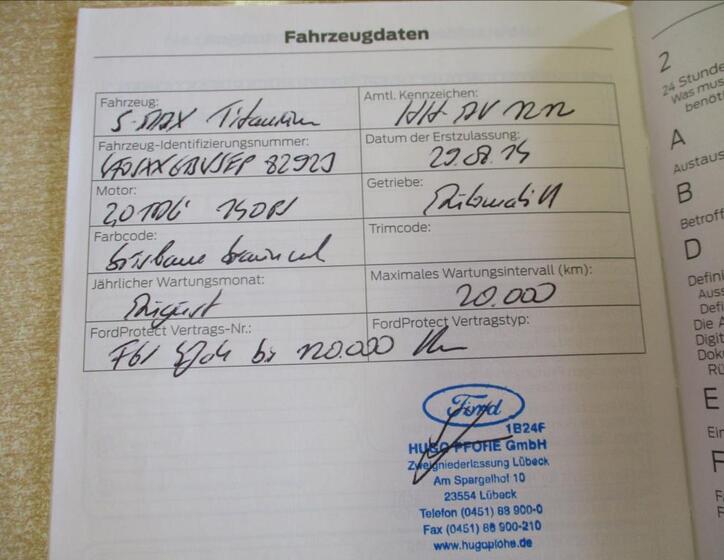 Fahrzeugdaten
Fahrzeug:
S-MAX Titanium
Amtl. Kennzeichen:
HH
Fahrzeug-Identifizierungsnummer:
82923
Datum der Erstzulassung:
29.08.14
Motor:
2,0 TDCi 140PS
Getriebe:
Automatik
Farbcode:
Trimcode:
Jährlicher Wartungsmonat:
August
Maximales Wartungsintervall (km):
20.000
FordProtect Vertrags-Nr.:
FordProtect Vertragstyp:
bis 120.000 km
Ford
1B24F
HUGO PFOHE GmbH
Zweigniederlassung Lübeck
Am Spargelhof 10
23554 Lübeck
Telefon (0451) 88 900-0
Fax (0451) 88 900-210
www.hugopfohe.de
2
24 Stunde
Was mus
benöti
A
Austaus
B
Betroff
D
Defini
Auss
Defi
Die A
Digit
Doku
Rü
E
Ein
F